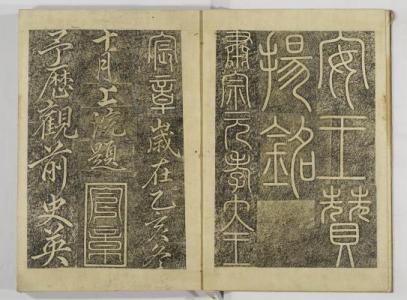 安王贊
揚銘
肅宗元孝大王
宸章歲在乙亥冬
十月上浣題
予歷觀前史英